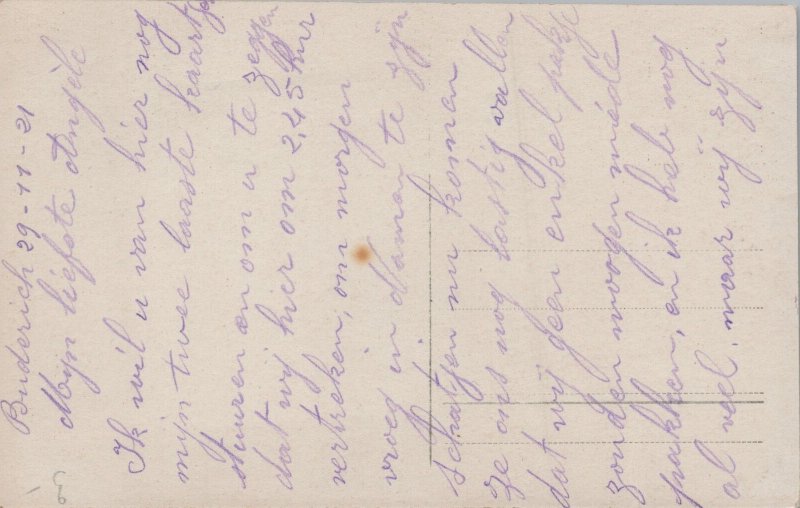 Buderich 29-11-21
Mijn liefste Angèle
Ik wil u van hier nog
mijn twee laaste kaartjes
sturen en om u te zeggen
dat wij hier om 2,45 huur
vertreken, om morgen
vroeg in Namen te zijn
schatjen nu komen
ze ons nog lastig vallen
dat wij geen enkel pakje
zouden moogen mede
pakken, en ik heb nog
al veel, maar wij zijn